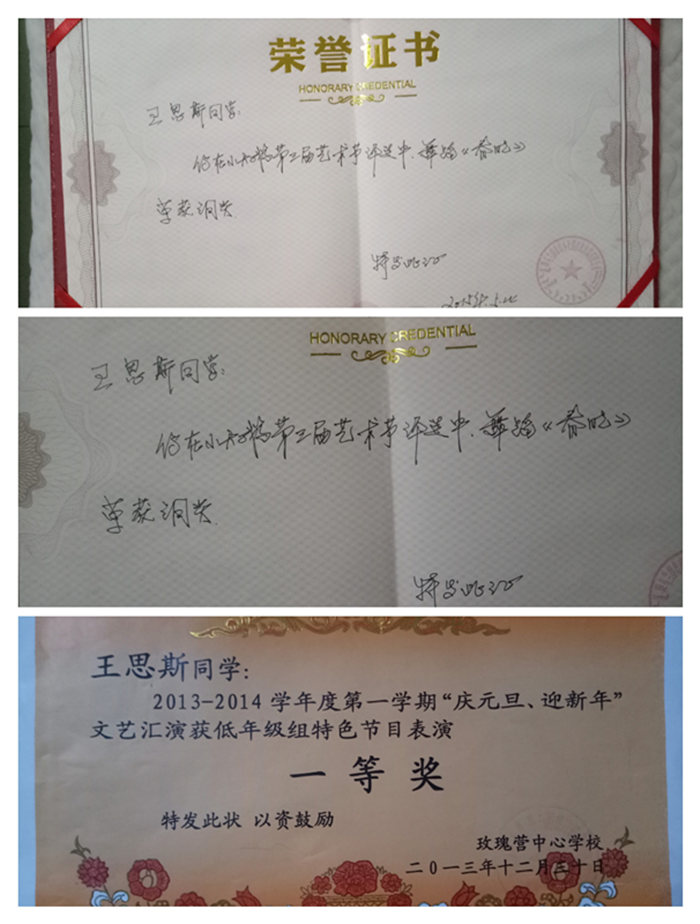 荣誉证书
HONORARY CREDENTIAL
王思斯同学:
你在小太阳第二届艺术节评选中,舞蹈《春晓》
荣获铜奖
特发此证
HONORARY CREDENTIAL
王思斯同学:
你在小太阳第二届艺术节评选中,舞蹈《春晓》
荣获铜奖
特发此证
王思斯同学:
2013-2014 学年度第一学期“庆元旦、迎新年”
文艺汇演获低年级组特色节目表演
一等奖
特发此状 以资鼓励
玫瑰营中心学校
二0一三年十二月三十日